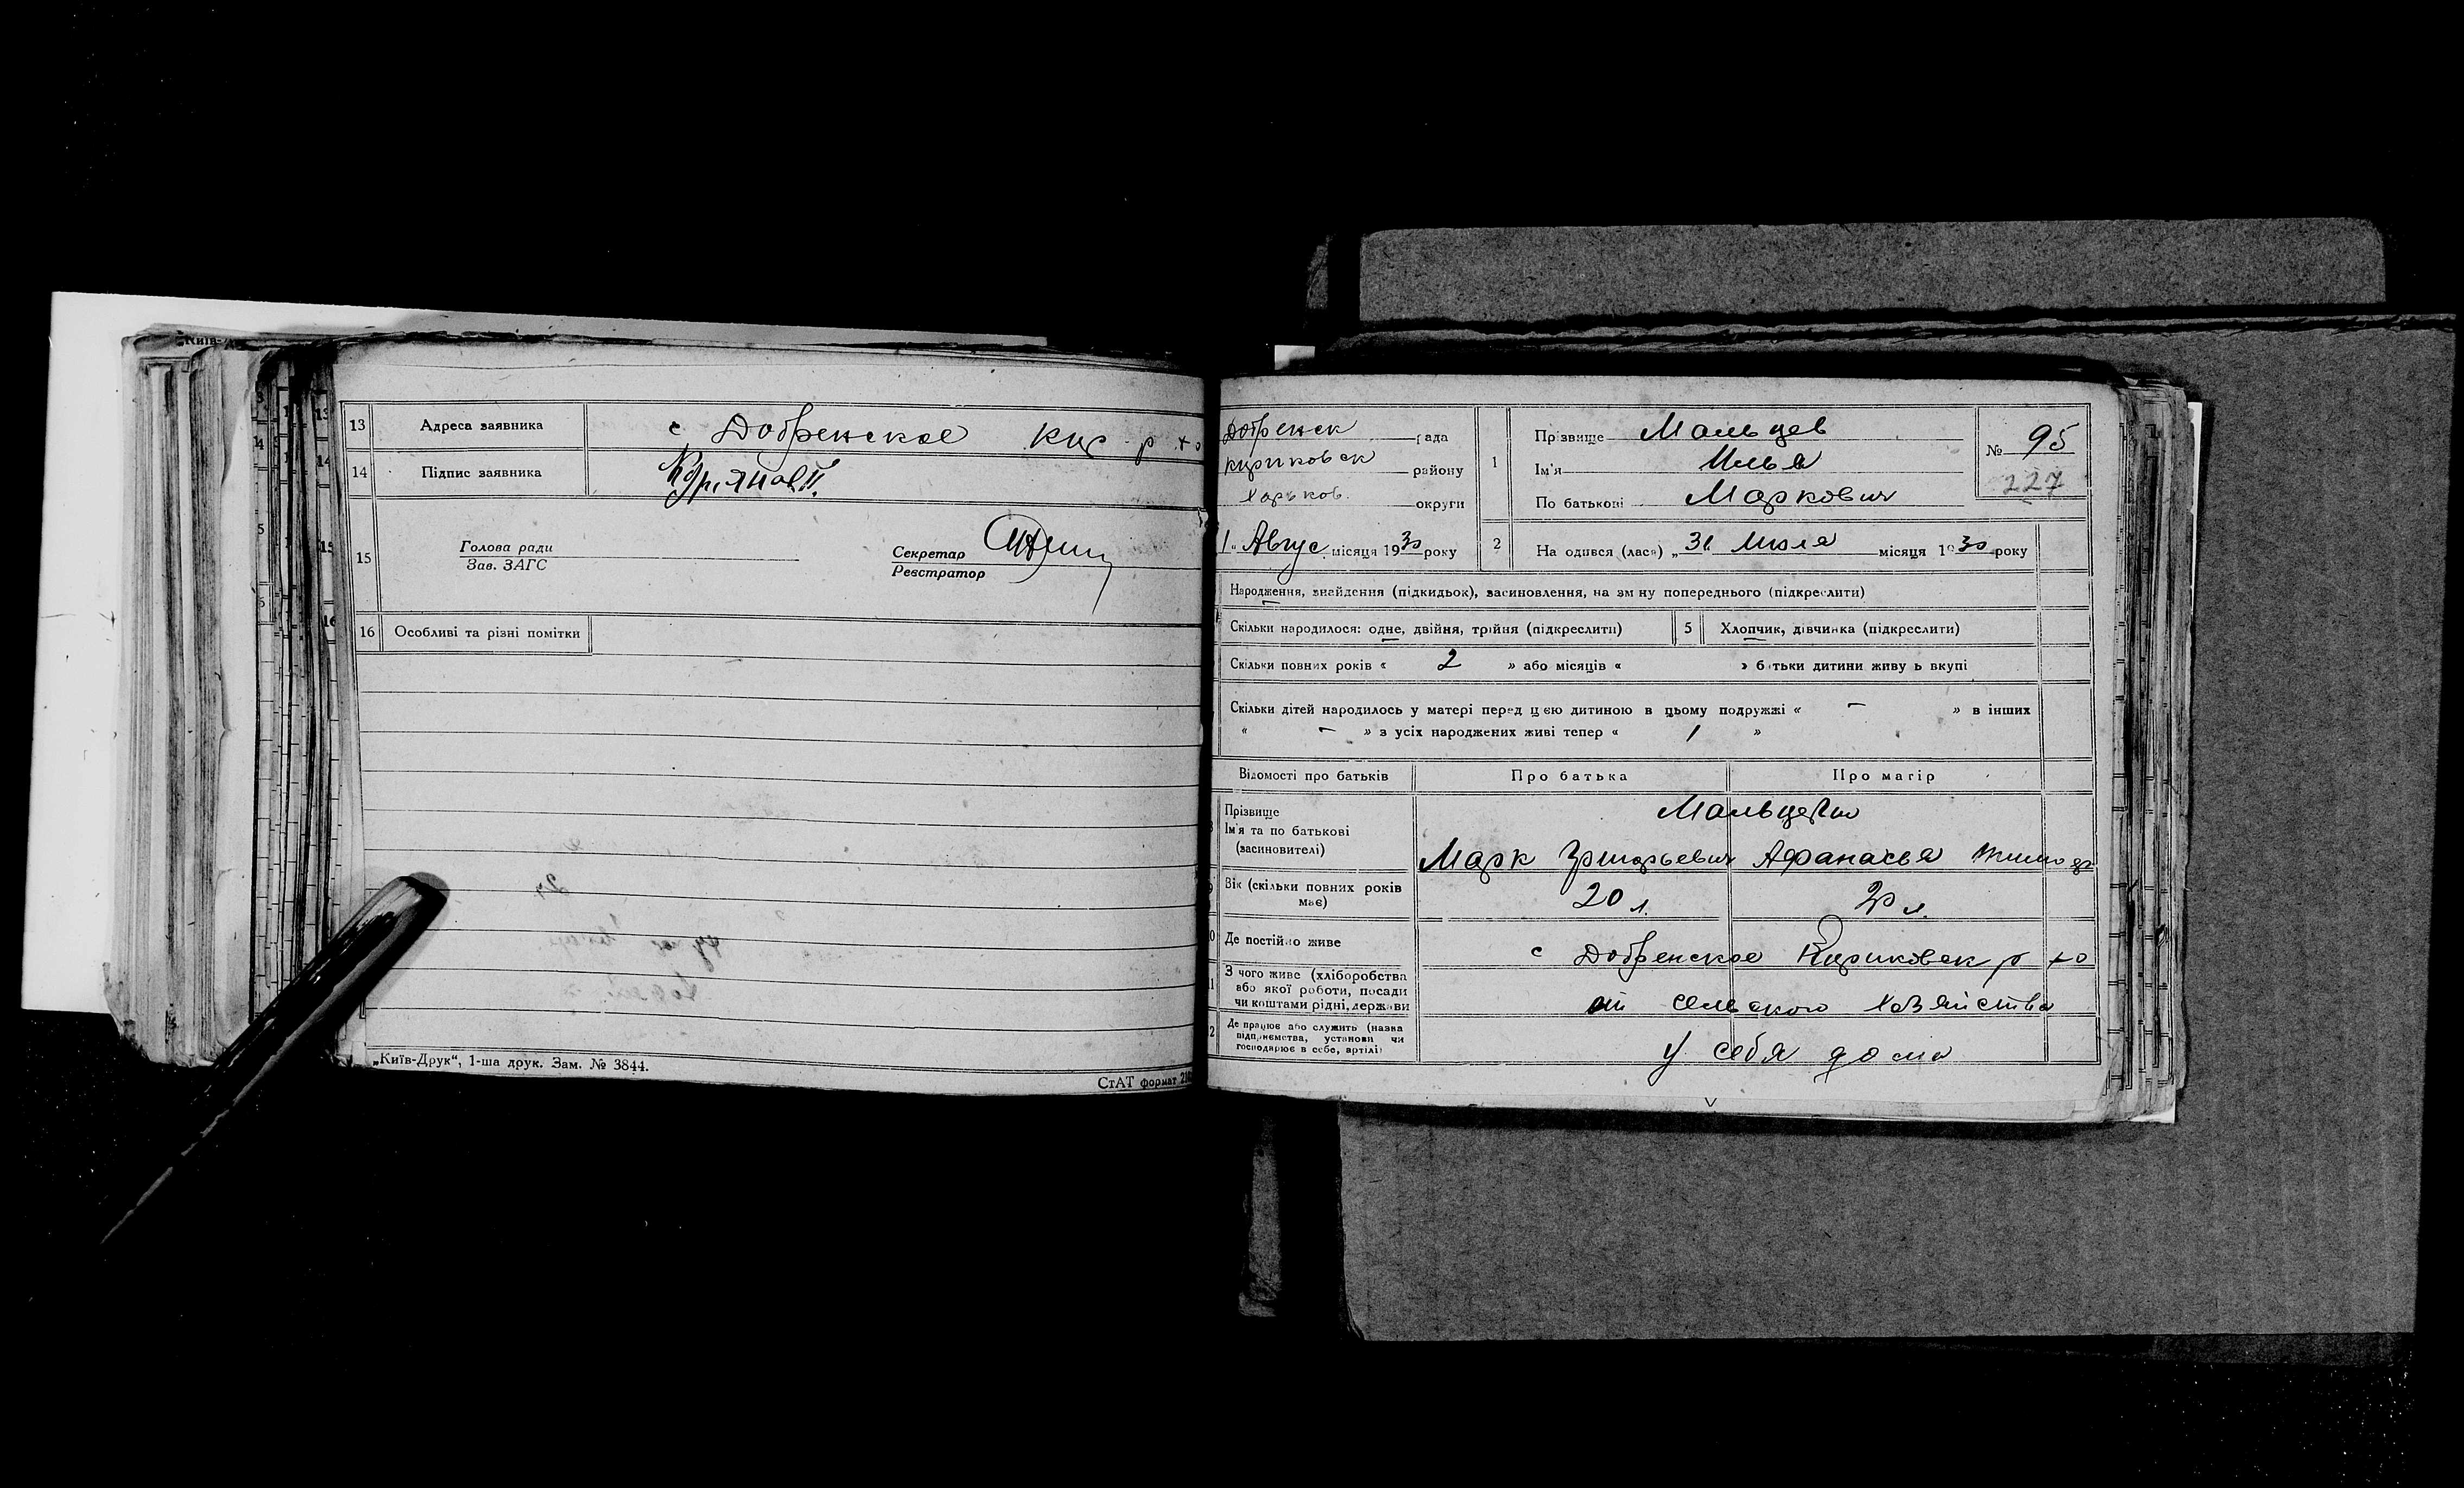 13 Адреса заявника с Добренское Кир р ХО
14 Підпис заявника
15 Голова ради
Зав. ЗАГС
Секретар
Реєстратор
16 Особливі та різні помітки
„Київ-Друк“, 1-ша друк. Зам. № 3844.
СтАТ формат
Добренск рада
Кириковск району
Харьков. округи
1 Прізвище Мальцев
Ім'я Илья
По батькові Маркович
№ 95
227
1 „ Авгус місяця 1930 року
2 На одився (лася) „31 Июля місяця 1930 року
Народження, знайдення (підкидьок), засиновлення, на зм ну попереднього (підкреслити)
Скільки народилося: одне, двійня, трійня (підкреслити) 5 Хлопчик, дівчинка (підкреслити)
Скільки повних років « 2 » або місяців « » б тьки дитини живу ь вкупі
Скільки дітей народилось у матері перед цією дитиною в цьому подружжі « - » в інших
« - » з усіх народжених живі тепер « 1 »
Відомості про батьків Про батька Про матір
Прізвище
Ім'я та по батькові
(засиновителі)
Мальцевы
Марк Григорьевич Афанасья
Вік (скільки повних років
має)
20 л. 20 л.
Де постійно живе с Добренское Кириковск р ХО
З чого живе (хліборобства
або якої роботи, посади
чи коштами рідні, держави
от сельского хозяйства
Де працює або служить (назва
підприємства, установи чи
господарює в себе, артілі)
у себя дома